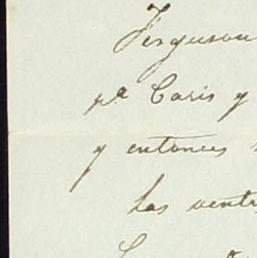 Ferguson
pa Caris y
y entonces
las ventr